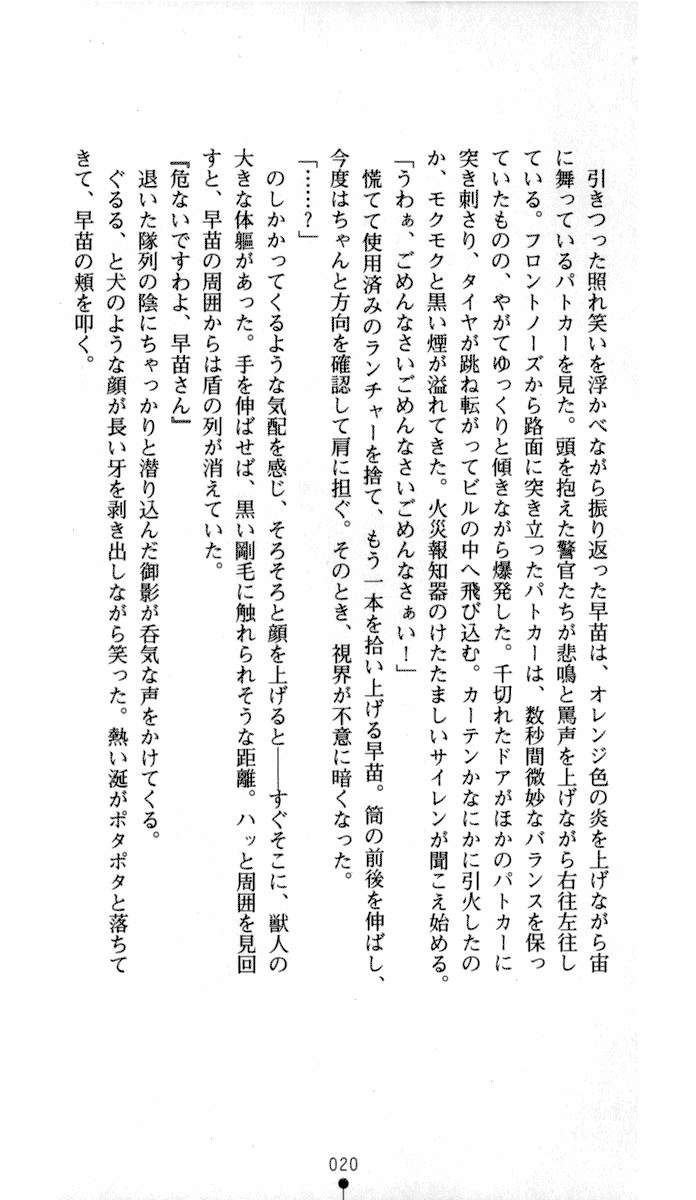 引きつった照れ笑いを浮かべながら振り返った早苗は、オレンジ色の炎を上げながら宙
に舞っているパトカーを見た。頭を抱えた警官たちが悲鳴と罵声を上げながら右往左往し
ている。フロントノーズから路面に突き立ったパトカーは、数秒間微妙なバランスを保っ
ていたものの、やがてゆっくりと傾きながら爆発した。千切れたドアがほかのパトカーに
突き刺さり、タイヤが跳ね転がってビルの中へ飛び込む。カーテンかなにかに引火したの
か、モクモクと黒い煙が溢れてきた。火災報知器のけたたましいサイレンが聞こえ始める。
「うわぁ、ごめんなさいごめんなさいごめんなさぁい！」
慌てて使用済みのランチャーを捨て、もう一本を拾い上げる早苗。筒の前後を伸ばし、
今度はちゃんと方向を確認して肩に担ぐ。そのとき、視界が不意に暗くなった。
「……？」
のしかかってくるような気配を感じ、そろそろと顔を上げると――すぐそこに、獣人の
大きな体軀があった。手を伸ばせば、黒い剛毛に触れられそうな距離。ハッと周囲を見回
すと、早苗の周囲からは盾の列が消えていた。
『危ないですわよ、早苗さん』
退いた隊列の陰にちゃっかりと潜り込んだ御影が呑気な声をかけてくる。
ぐるる、と犬のような顔が長い牙を剥き出しながら笑った。熱い涎がポタポタと落ちて
きて、早苗の頬を叩く。
020